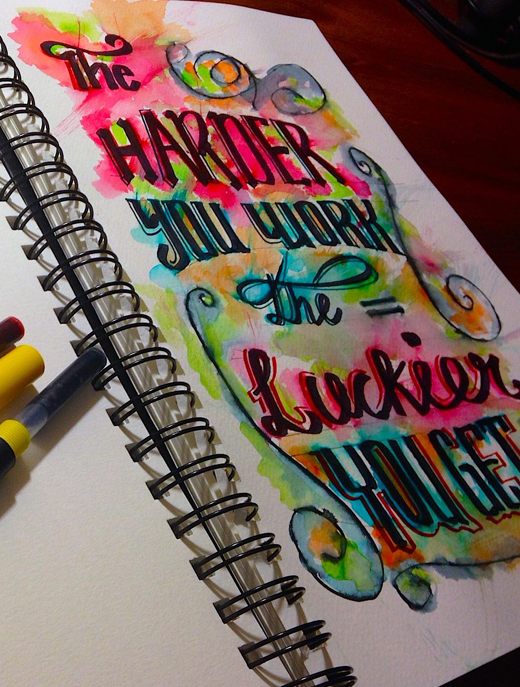 The
HARDER
YOU WORK
the =
Luckier
YOU GET